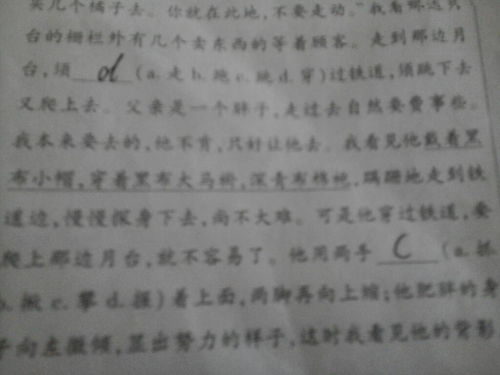 买几个橘子去。你就在此地,不要走动。"我看那边月
台的栅栏外有几个卖东西的等着顾客。走到那边月
台,须 d (a.走 b.跑 c.跳 d.穿)过铁道,须跳下去
又爬上去。父亲是一个胖子,走过去自然要费事些。
我本来要去的,他不肯,只好让他去。我看见他戴着黑
布小帽,穿着黑布大马褂,深青布棉袍,蹒跚地走到铁
道边,慢慢探身下去,尚不大难。可是他穿过铁道,要
爬上那边月台,就不容易了。他用两手 C (a.抓
b.撖 c.攀 d.摸)着上面,两脚再向上缩;他肥胖的身
子向左微倾,显出努力的样子,这时我看见他的背影